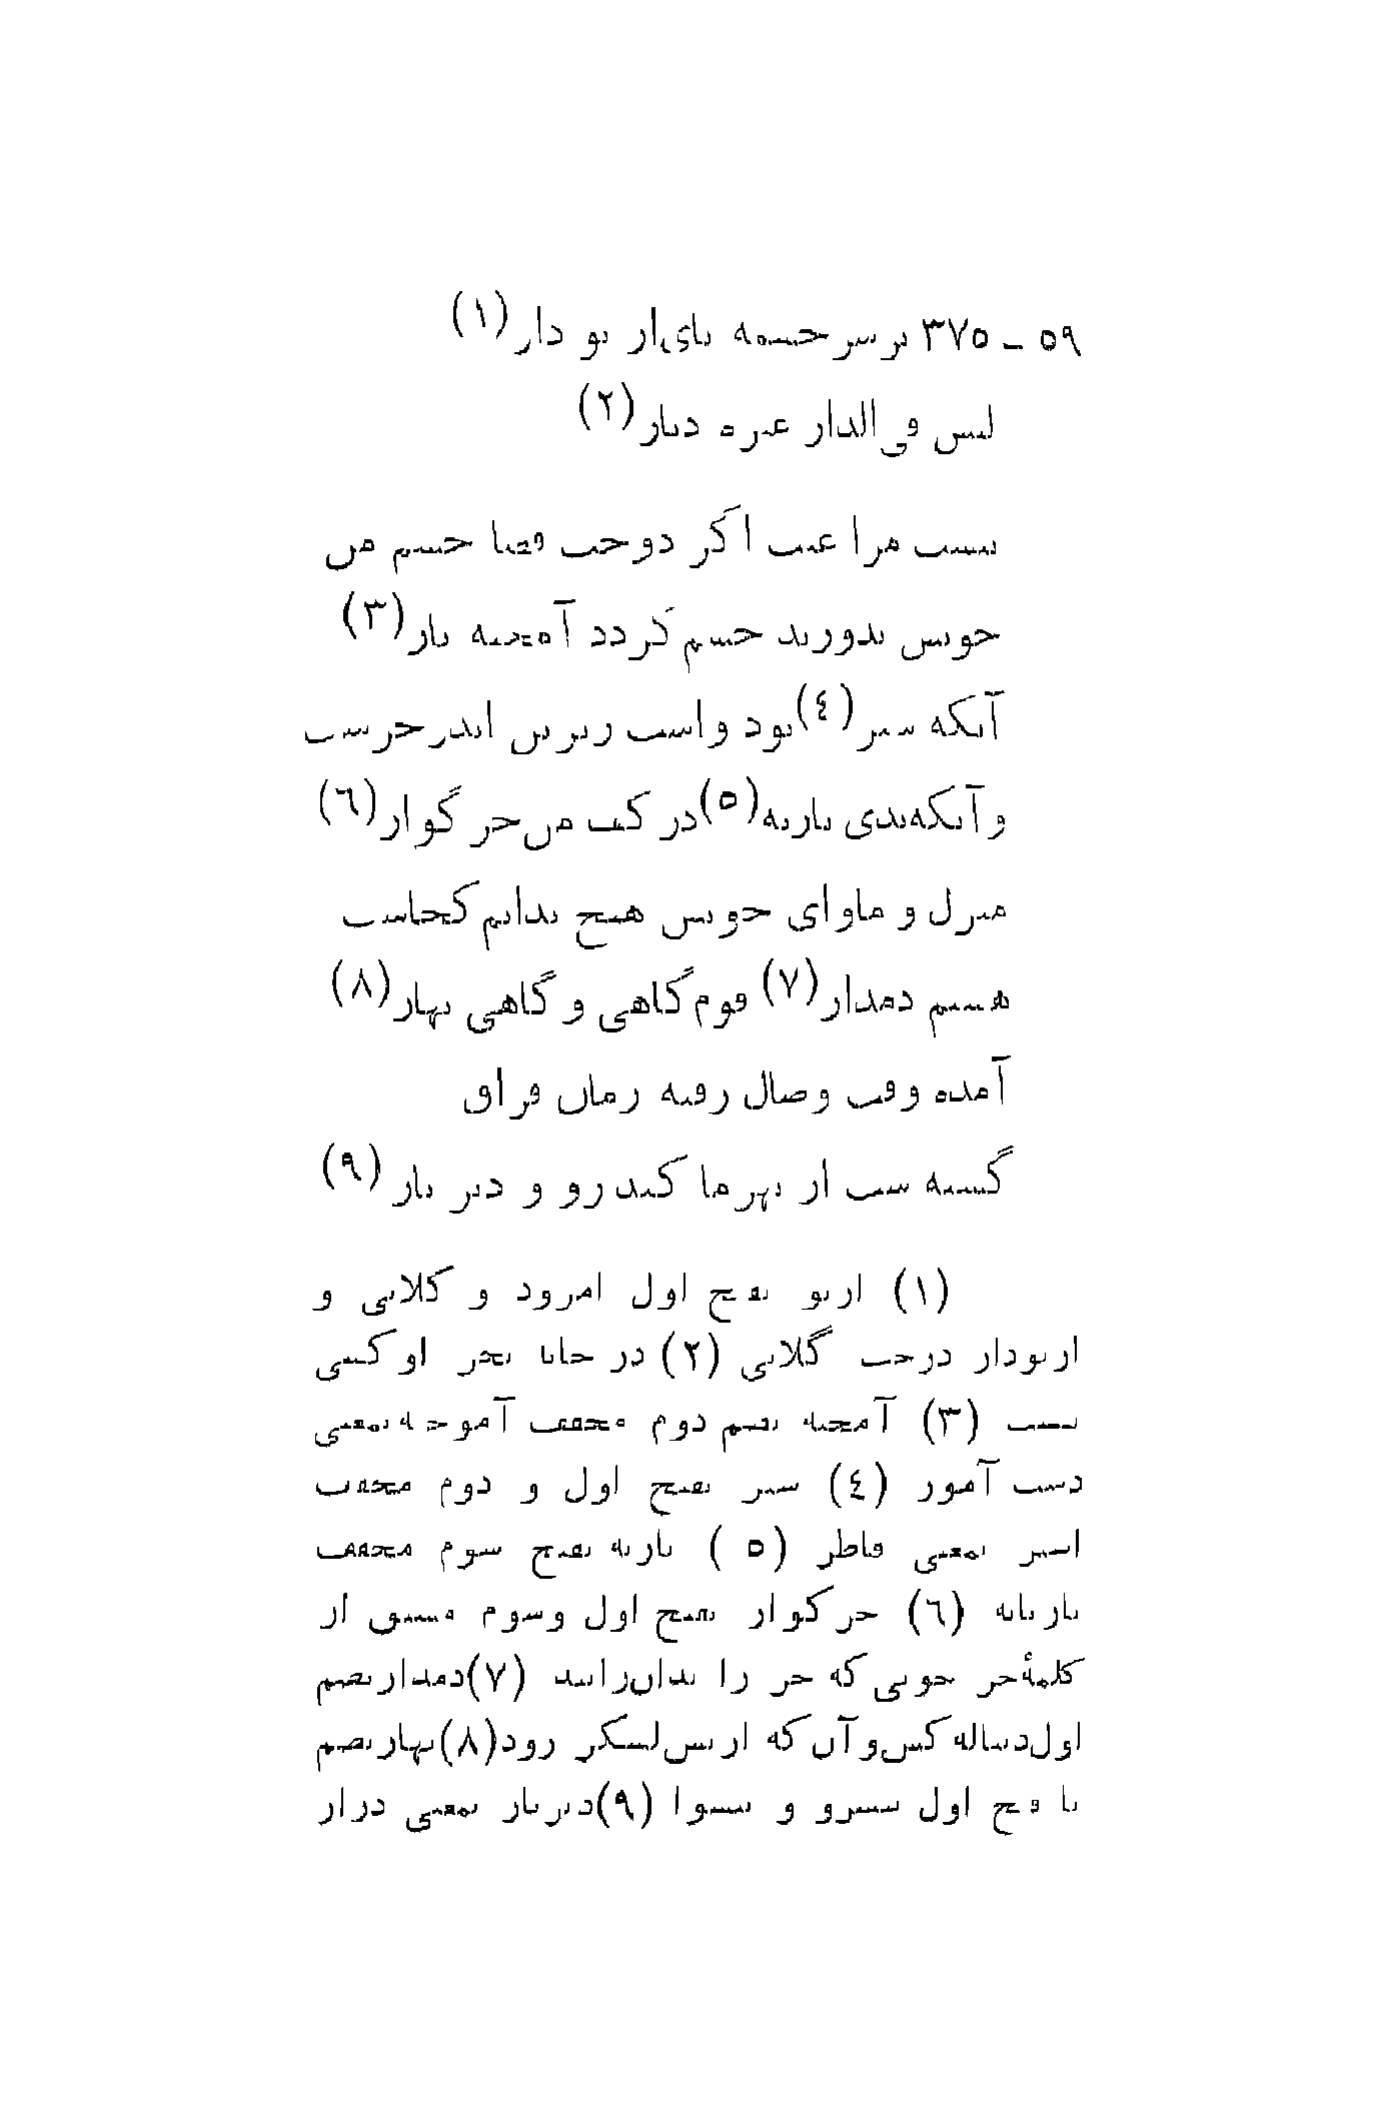 ۵۹ - ۳۷۵ بر سر چشمه پای ار بو دار (۱)
لیس فی الدار غیره دیار (۲)
نیست مرا عیب اگر دوخت قضا چشم من
خویش بدوزند چشم گردد آمخته باز (۳)
آنکه ستر (۴) بود و اسب زیرش اندر خرست
وآنکه بدی تازنه (۵) در کف من خر گواز (۶)
منزل و ماوای خویش هیچ ندانم کجاست
هستم دمدار (۷) قوم گاهی و گاهی نهاز (۸)
آمده وقت وصال رفته زمان فراق
گشته شب از بهر ما کند رو و دیر باز (۹)
(۱) اربو بفتح اول امرود و گلابی و
اربودار درخت گلابی (۲) در خانه بجز او کسی
نیست (۳) آمخته بضم دوم مخفف آموخته بمعنی
دست آموز (۴) ستر بفتح اول و دوم مخفف
استر بمعنی قاطر (۵) تازنه بفتح سوم مخفف
تازیانه (۶) خر گواز بفتح اول و سوم مشتق از
کلمهٔ خر چوبی که خر را بدان رانند (۷) دمدار بضم
اول دنباله کش و آن که از پس لشکر رود (۸) نهاز بضم
یا فتح اول پیشرو و پیشوا (۹) دیر باز بمعنی دراز